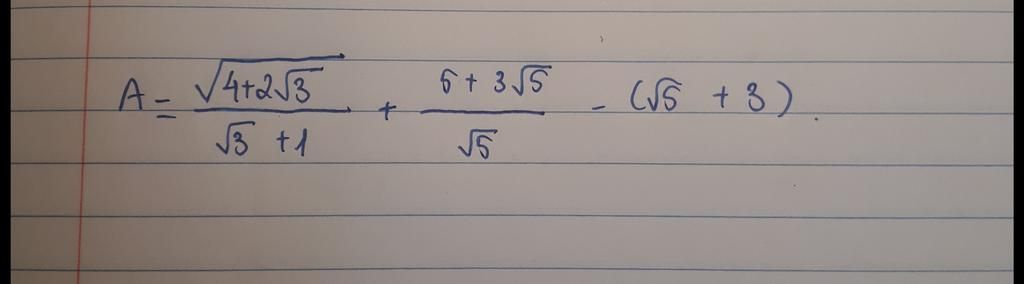 A = \frac{\sqrt{4+2\sqrt{3}}}{\sqrt{3}+1} + \frac{5+3\sqrt{5}}{\sqrt{5}} - (\sqrt{5}+3).